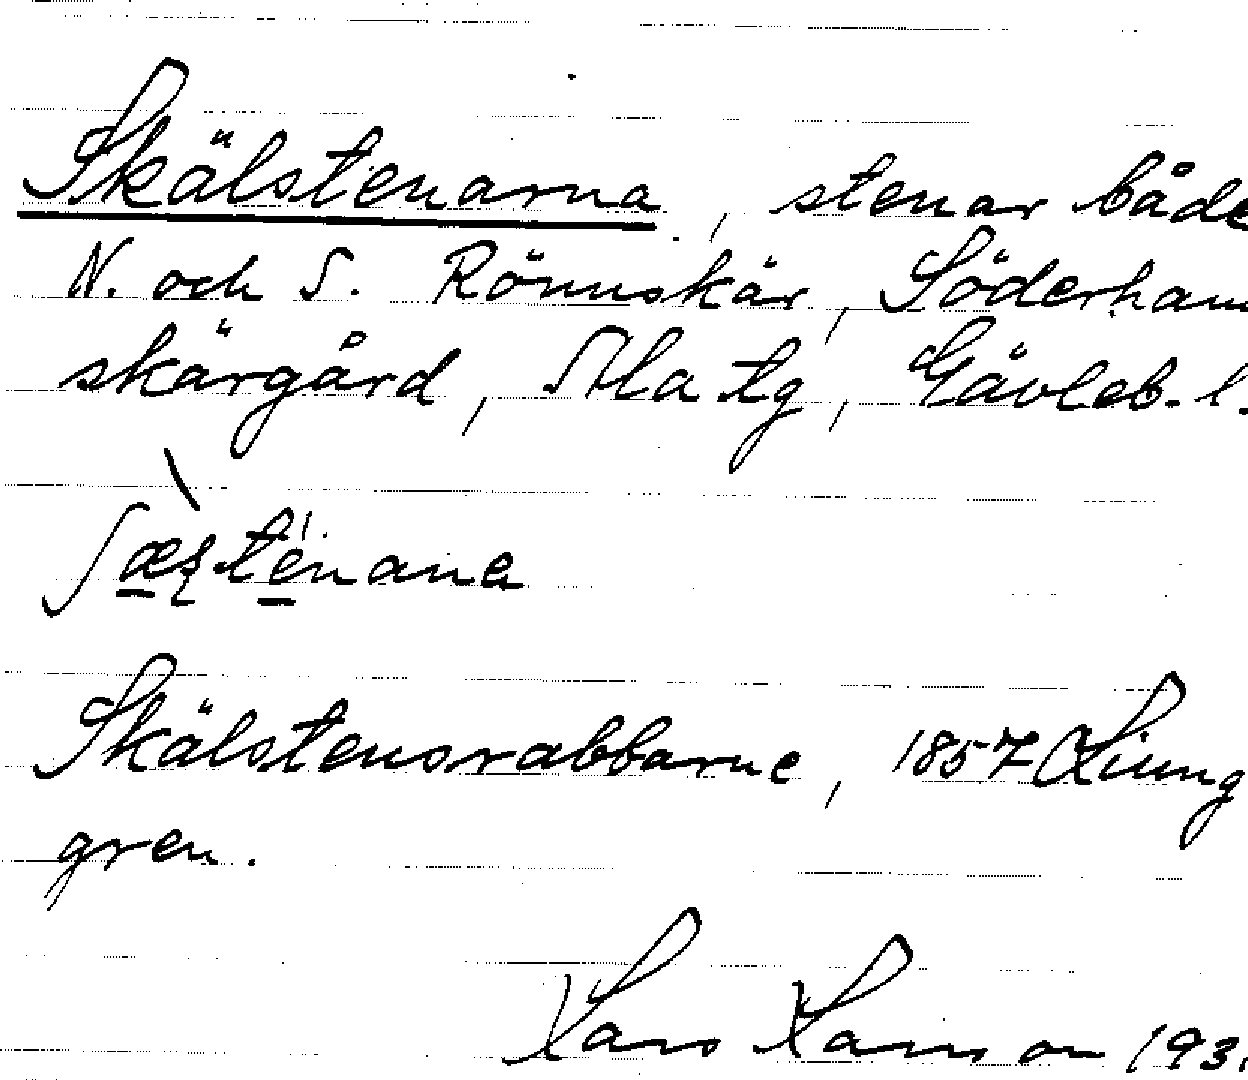 Skälstenarna, stenar både
N. och S. Rönnskär, Söderham
skärgård, Ala tg, Gävleb. l.
Skälstensrabbarne, 1857 Ljung
gren.
Lars Larsson 193